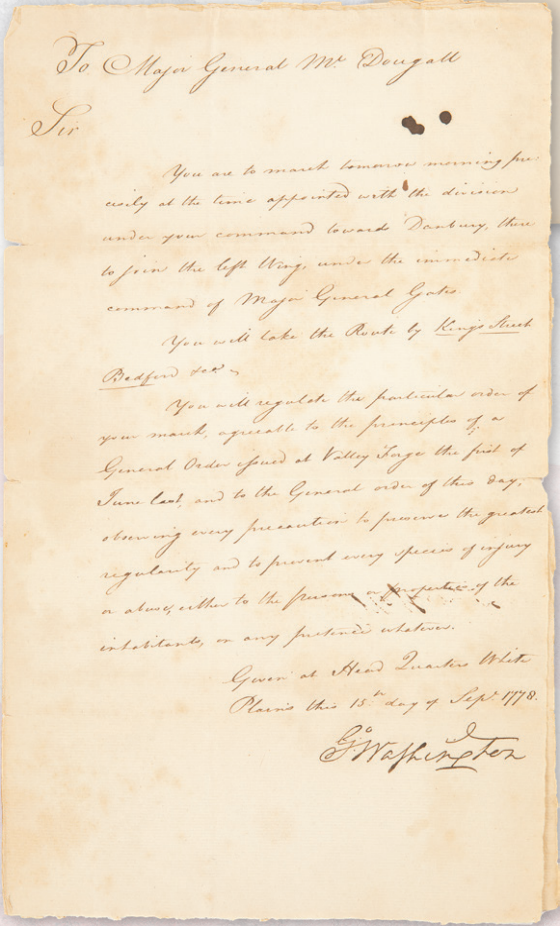 To Major General Mc Dougall
Sir
You are to march tomorrow morning pre-
cisily at the time appointed with the division
under your command towards Danbury, there
to join the left Wing, under the immediate
command of Major General Gates
You will take the Route by Kings Street
Bedford &ca
You will regulate the particular order of
your march, agreable to the principles of a
General Order issued at Valley Forge the first of
June last, and to the General order of this day,
observing every precaution to preserve the greatest
regularity and to prevent every species of injury
or abuse, either to the persons or properties of the
inhabitants, on any pretence whatever.
Given at Head Quarters White
Plains this 15th day of Sepr. 1778.
Go Washington